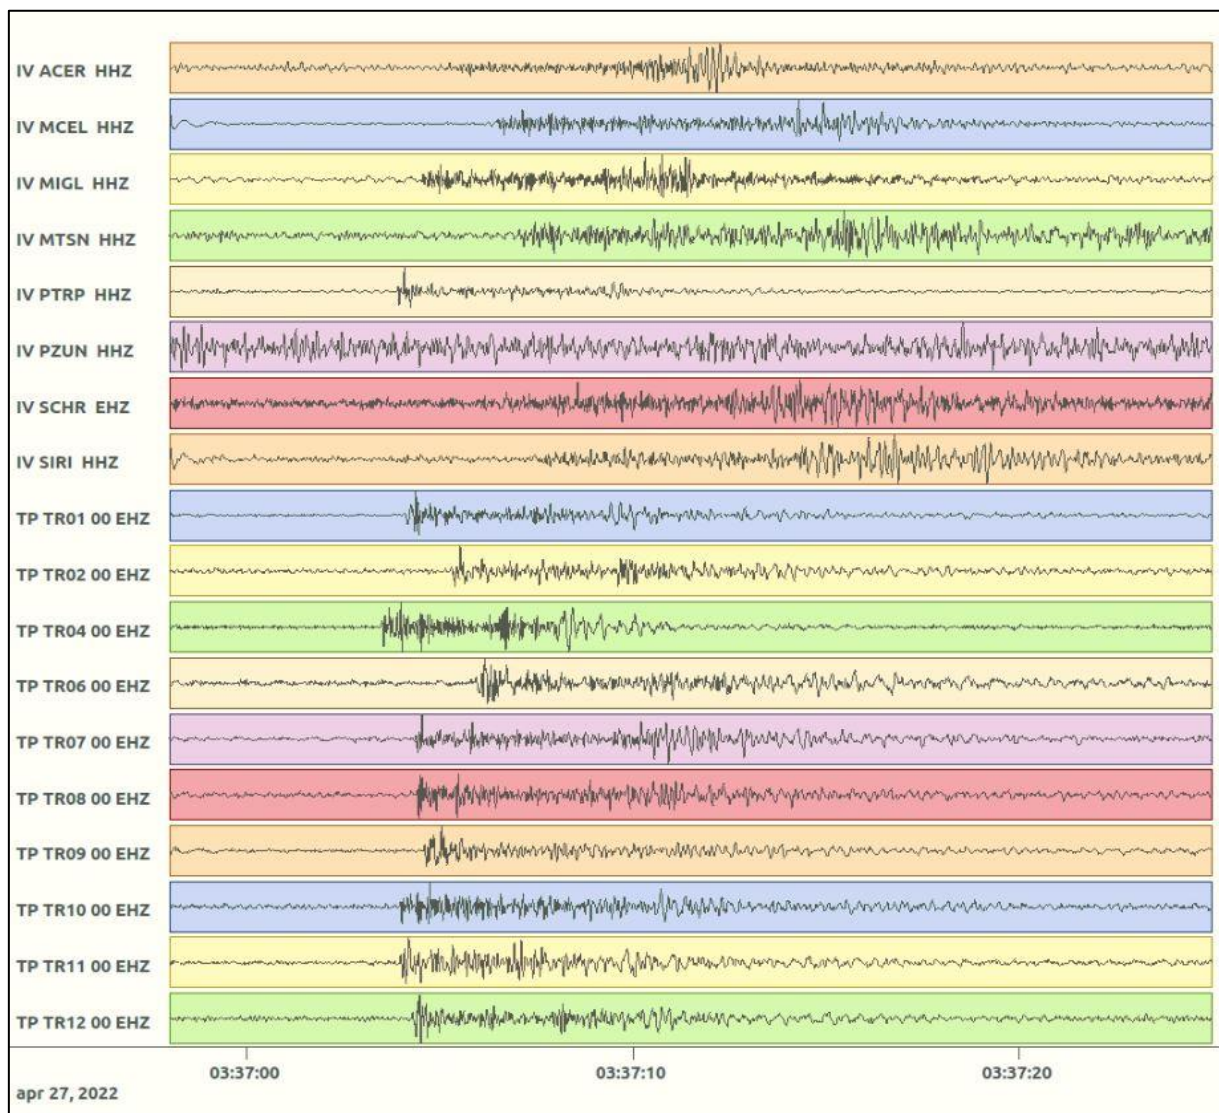 IV ACER HHZ
IV MCEL HHZ
IV MIGL HHZ
IV MTSN HHZ
IV PTRP HHZ
IV PZUN HHZ
IV SCHR EHZ
IV SIRI HHZ
TP TR01 00 EHZ
TP TR02 00 EHZ
TP TR04 00 EHZ
TP TR06 00 EHZ
TP TR07 00 EHZ
TP TR08 00 EHZ
TP TR09 00 EHZ
TP TR10 00 EHZ
TP TR11 00 EHZ
TP TR12 00 EHZ
03:37:00 03:37:10 03:37:20
apr 27, 2022